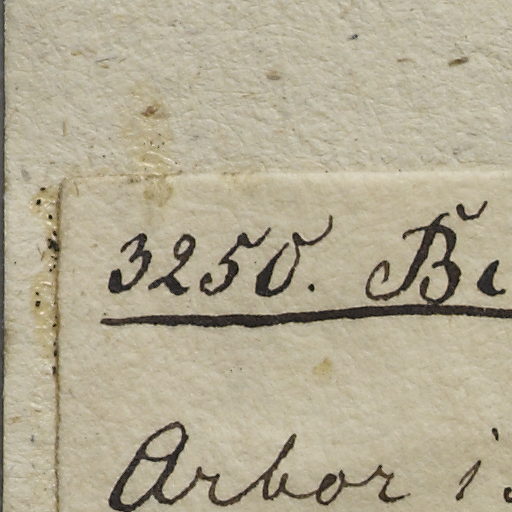 3250. Be
Arbor i